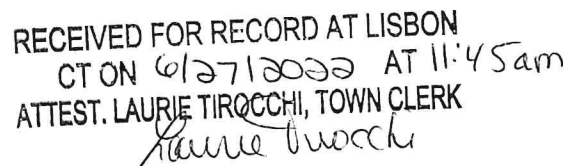 RECEIVED FOR RECORD AT LISBON
CT ON 6/27/2022 AT 11:45am
ATTEST. LAURIE TIROCCHI, TOWN CLERK
Laurie Tirocchi